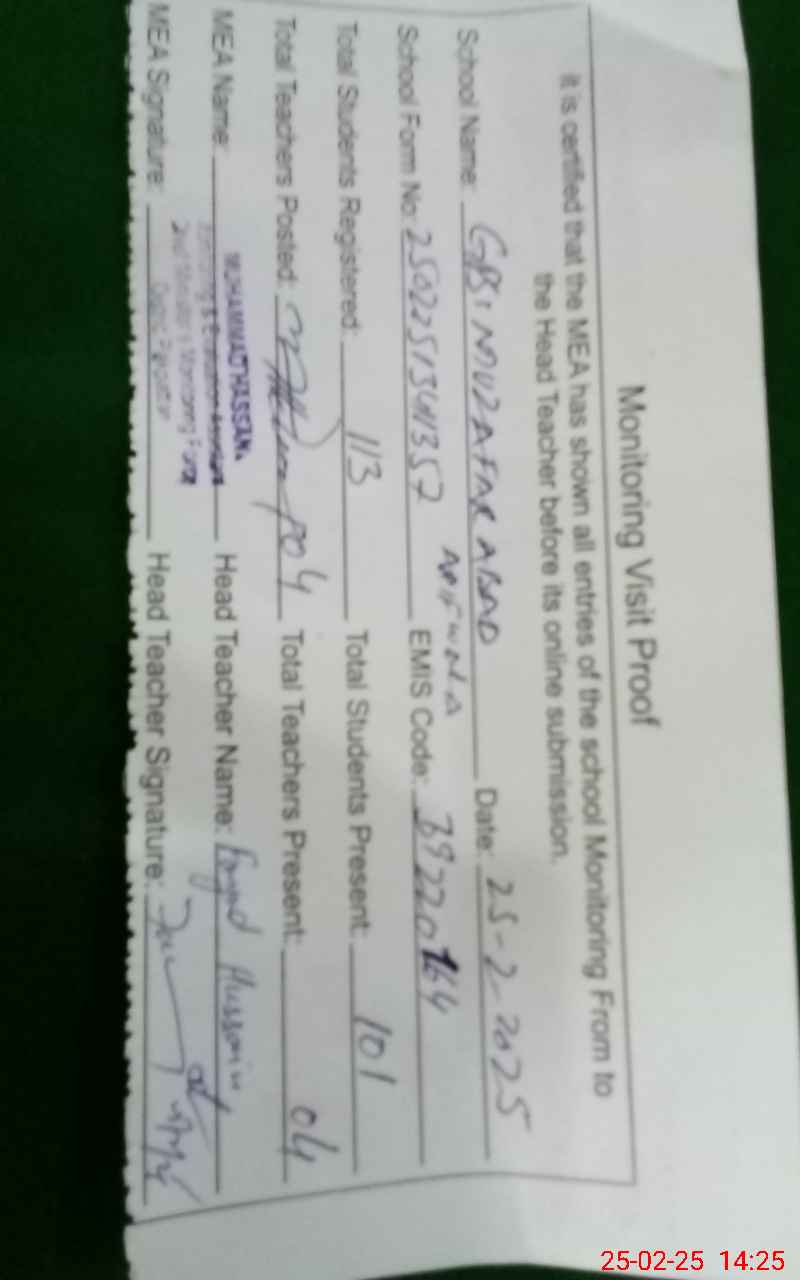 Monitoring Visit Proof
it is certified that the MEA has shown all entries of the school Monitoring From to
the Head Teacher before its online submission.
School Name: GPS MUZAFAR ABAD Date: 25-2-2025
ARIFWALA
School Form No: EMIS Code: 39220164
Total Students Registered: 113 Total Students Present: 101
Total Teachers Posted: 04 Total Teachers Present: 04
MEA Name: MUHAMMAD HASSAN Head Teacher Name: Hussain
Monitoring & Evaluation Assistant
Chief Minister's Monitoring Force
MEA Signature: Head Teacher Signature:
25-02-25 14:25